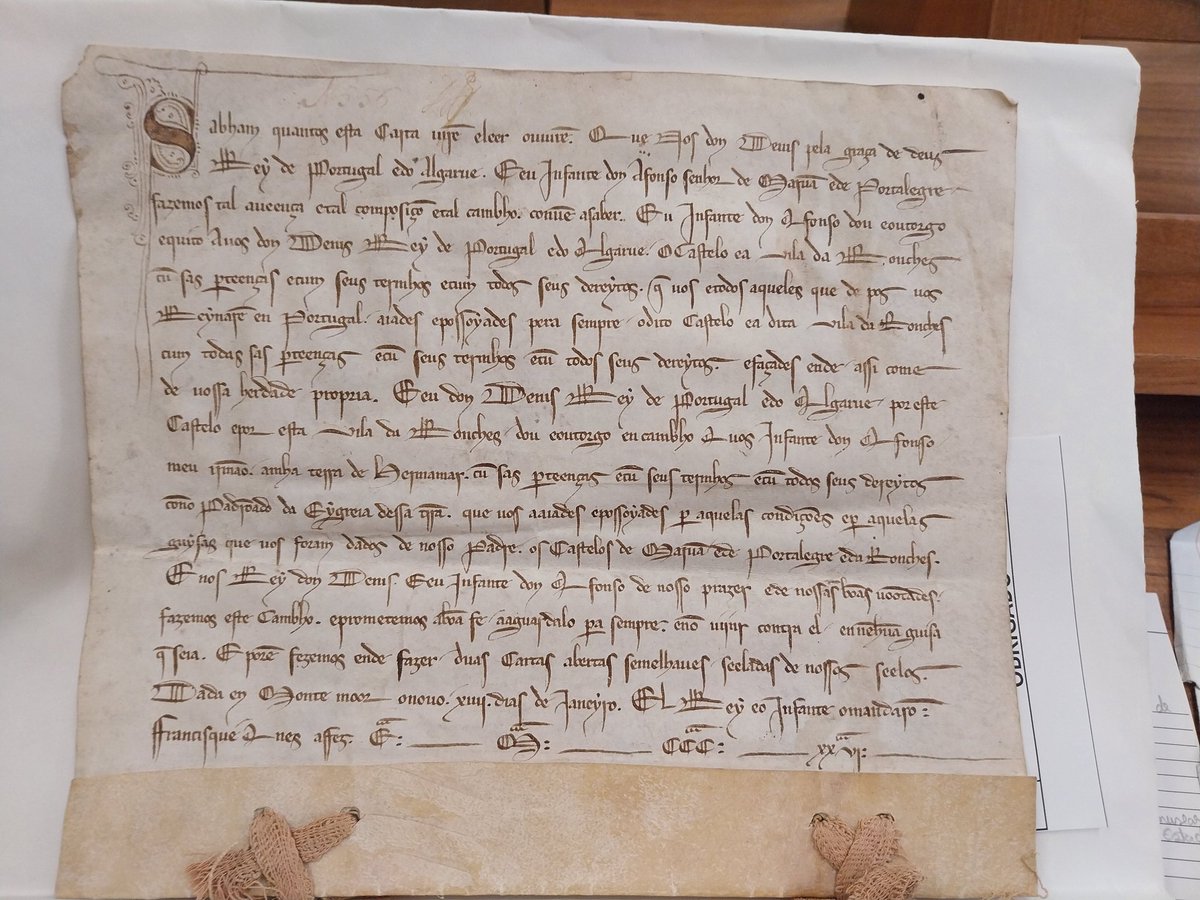 Sabham quantos esta Carta uirē eleer ouuirē. Que Nos don Denis pela graça de deus
Rey de Portugal edo Algarue. Eeu Infante don Afonso senhor de Maruā ede Portalegre
fazemos tal aueença etal composiçō etal cambho. conuē asaber. Eu Infante don Afonso dou eoutorgo
equito Auos don Denis Rey de Portugal edo Algarue. OCastelo ea uila da Ronches
cū sas perteenças ecum seus termhos ecum todos seus dereytos. q̄ uos etodos aqueles que de pos uos
Reynarē en Portugal. aiades epossoyades pera sempre odito Castelo ea dita uila da Ronches
cum todas sas perteenças ecū seus termhos ecū todos seus dereytos. efaçades ende assi come
de uossa herdade propria. Eeu don Denis Rey de Portugal edo Algarue por este
Castelo epor esta uila da Ronches. dou eoutorgo en cambho Auos Infante don Afonso
meu irmāo. amha terra de Hermamar. cū sas perteenças ecū seus termhos ecū todos seus dereytos
cono Padrōado da Eygreia dessa trr̄a. que uos aaiades epossoyades per aquelas condiçōes eper aquelas
guysas que uos foram dados de nosso Padre. os Castelos de Maruā ede Portalegre eda Ronches.
E nos Rey don Denis. Eeu Infante don Afonso de nosso prazer ede nossas bōas uoontades.
fazemos este Cambho. eprometemos abōa fe. aaguardalo pera sempre. enō uijnr contra el. en nēhūa guisa
q̄ seia. E porē fezemos ende fazer duas Cartas abertas semelhaues seeladas de nossos seelos.
Dada en Monte moor onouo. xvii. dias de Janeyro. El Rey eo Infante omandarō:
Francisque Anes afez. Eª: M: CCC: xxvi:
OBRIGADO
de